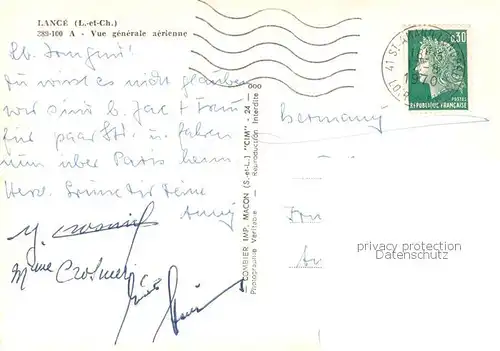 LANCÉ (L.-et-Ch.)
389-100 A - Vue générale aérienne
Du wirst es nicht glauben
wir sind b. Jac +
für paar Std. u. fahren
nun über Paris heim.
Herzl. Grüße Dir Deine
Anny
M. Crosnier
Mme Crosnier
COMBIER IMP. MACON (S.-et-L.) "CIM" - 24 - 000
Photographie Véritable - Reproduction Interdite
0,30
41 ST-AMAND
1970
POSTES
REPUBLIQUE FRANÇAISE
Germany
privacy protection
Datenschutz